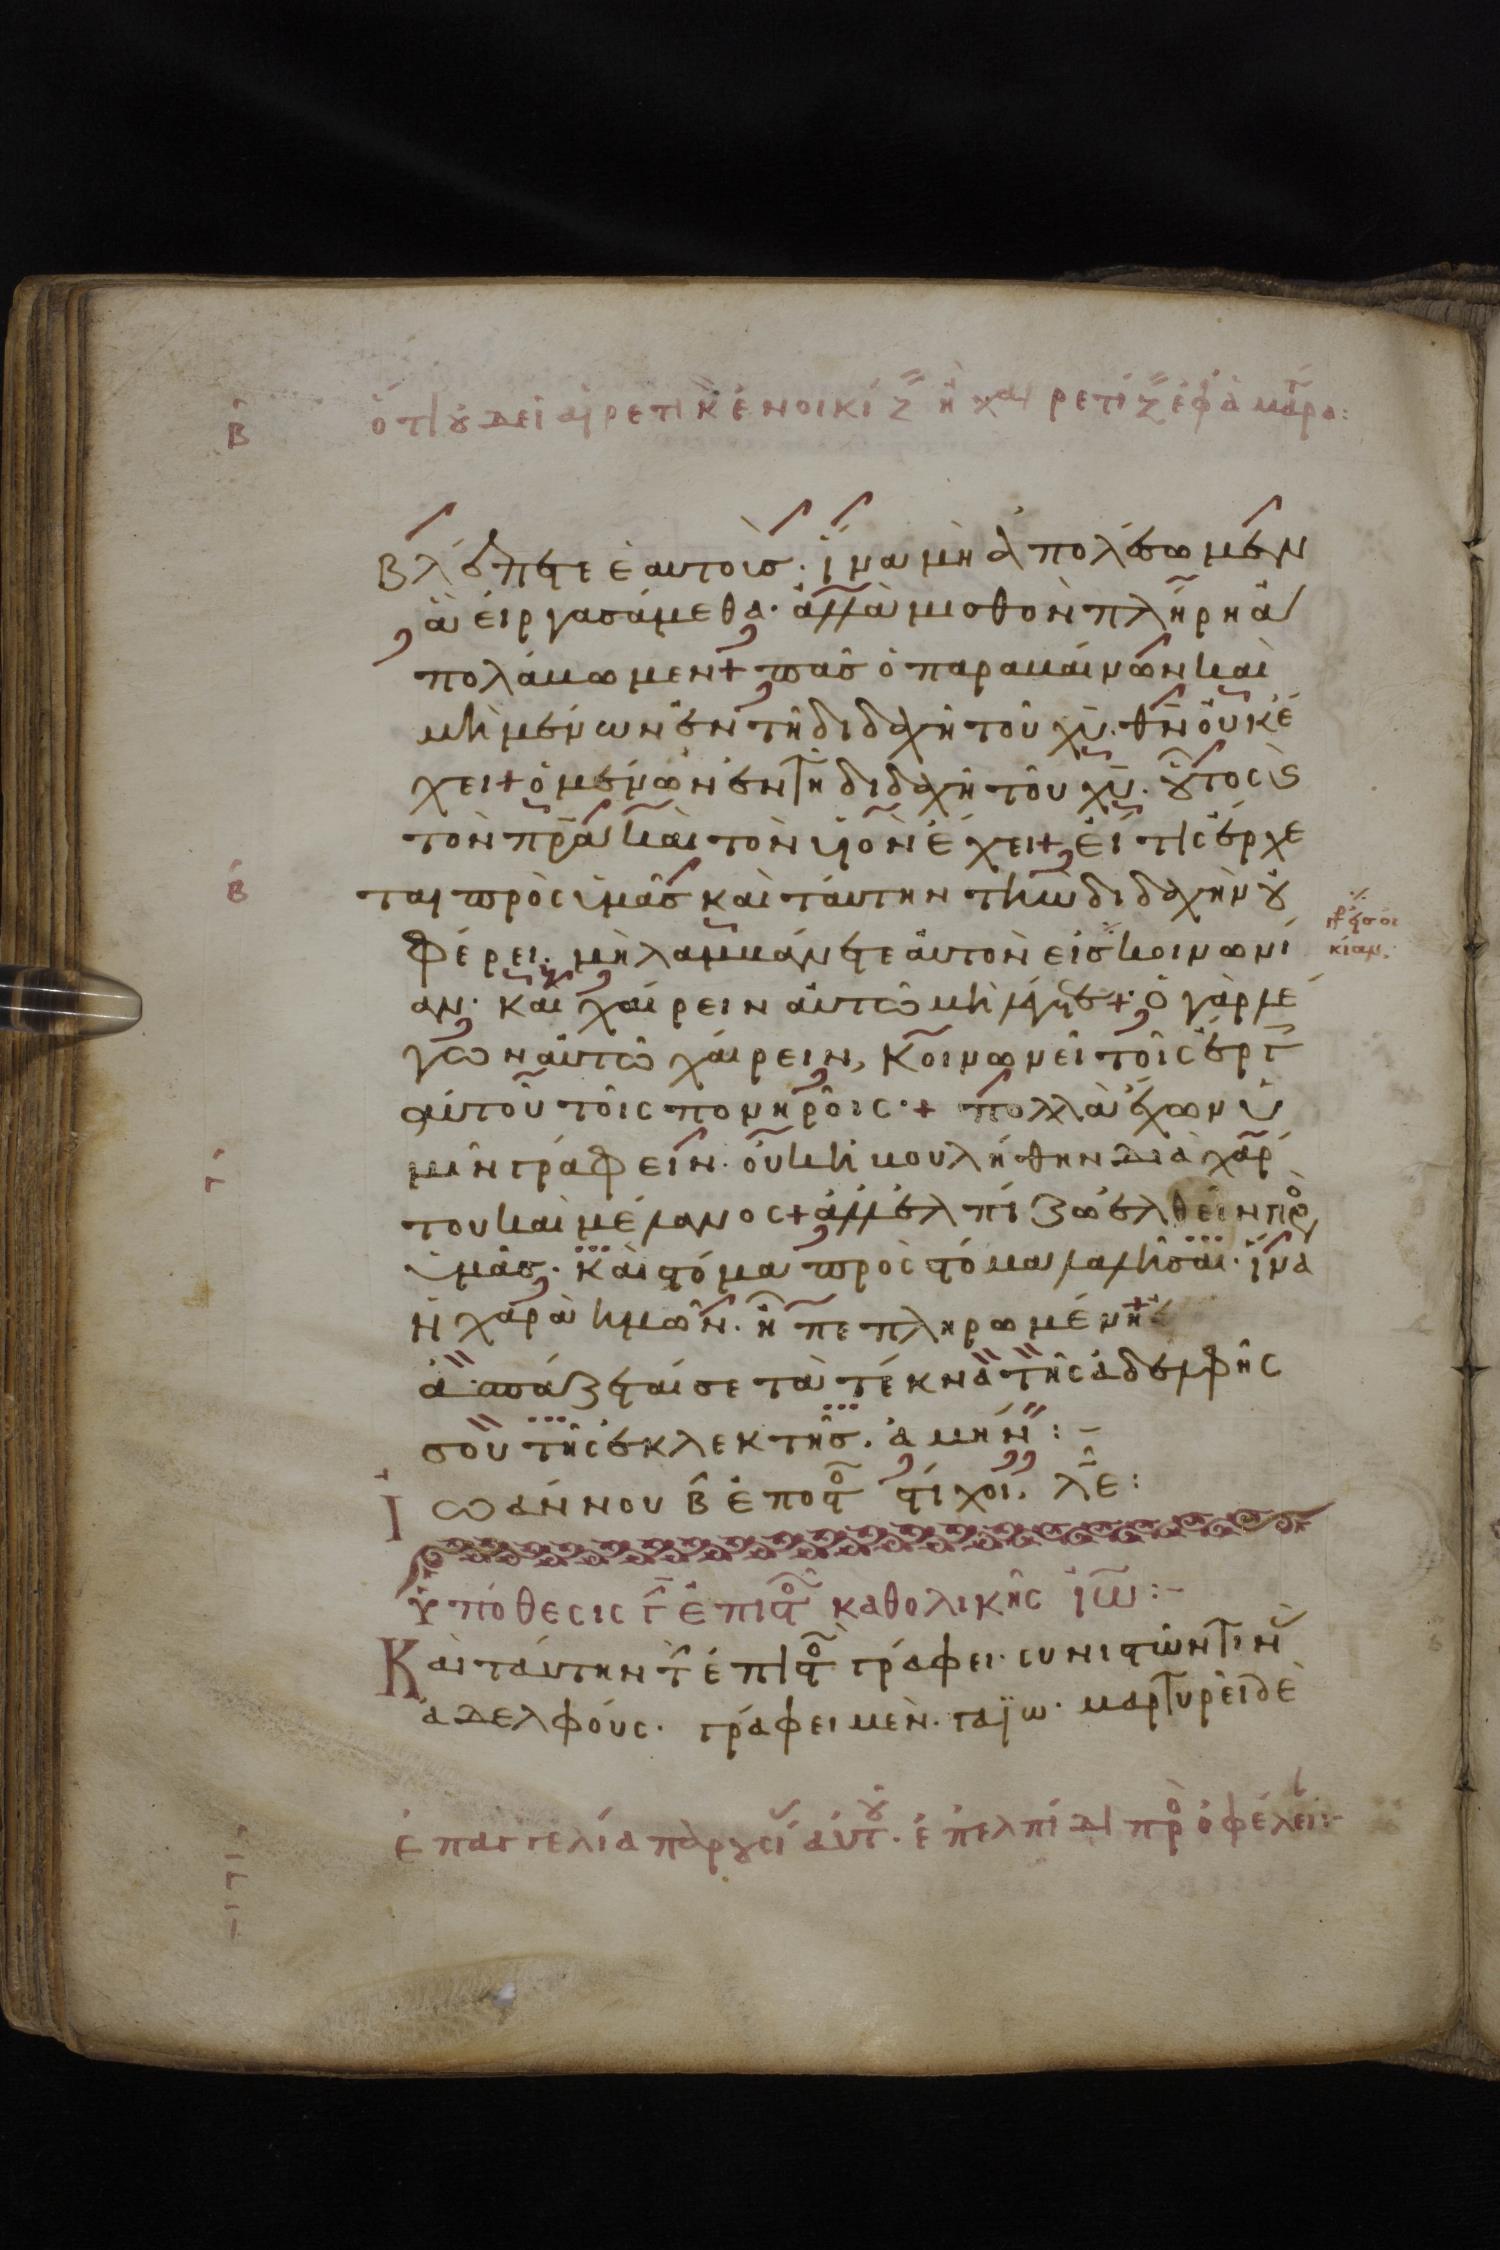 Β
ὅτι οὐ δεῖ αἱρετικ ἐνοικίζ ἢ χαιρετίζ ἐφ ἁμαρ:
Βλέπετε ἑαυτοὺς· ἵνα μὴ ἀπολέσωμεν
ἃ εἰργασάμεθα· ἀλλὰ μισθὸν πλήρη ἀ
πολάβωμεν + πᾶς ὁ παραβαίνων καὶ
μὴ μένων ἐν τῆ διδαχῆ τοῦ χυ· θν οὐκ έ
χει + ὁ μένων ἐν τῆ διδαχῆ τοῦ χυ· οὗτος ϛ
τὸν πρα καὶ τὸν υἱὸν ἔχει + εἴ τις ἔρχε
Β
ται πρὸς ὑμᾶς καὶ ταύτην τὴν διδαχὴν οὐ
φέρει· μὴ λαμβάνετε αὐτὸν εἰς κοινωνί
κίαν·
αν· καὶ χαίρειν αὐτῶ μὴ λέγετε + ὁ γὰρ λέ
γων αὐτῶ χαίρειν, κοινωνεῖ τοῖς ἔργ
αὐτοῦ τοῖς πονηροῖς· + πολλὰ ἔχων ὑ
Γ
μῖν γράφειν· οὐκ ἠβουλήθην διὰ χάρ
του καὶ μέλανος + ἀλλ' ἐλπίζω ἐλθεῖν πρὸ
ὑμᾶς· καὶ στόμα πρὸς στόμα λαλῆσαι· ἵνα
ἡ χαρὰ ἡμῶν· ἦ πεπληρωμένη +
ἀσπάζεταί σε τὰ τέκνα τῆς ἀδελφῆς
σου τῆς ἐκλεκτῆς. ἀμήν: -
Ἰωάννου Β ἐπο στίχοι. λε:
Ὑπόθεσις Γ ἐπιστο καθολικῆς ἰω:-
Καὶ ταύτην τ ἐπιστο γράφει· συνιστῶν τιν
ἀδελφούς· γράφει μὲν· γαΐω· μαρτυρεῖ δὲ
ἐπαγγελία παρουσί αὐτοῦ· ἐπ' ἐλπίδι πρὸ ὀφέλει:-